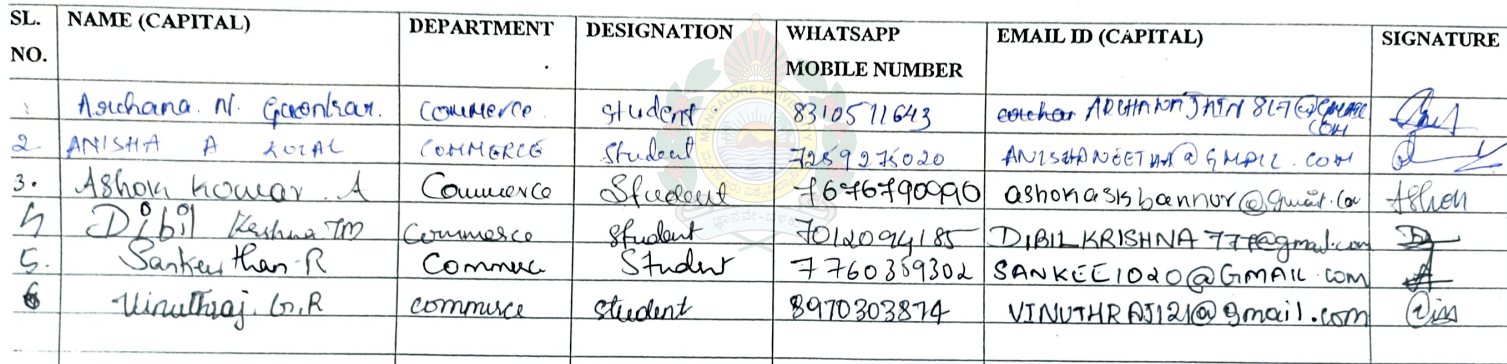 SL. NO. NAME (CAPITAL) DEPARTMENT DESIGNATION WHATSAPP MOBILE NUMBER EMAIL ID (CAPITAL) SIGNATURE
1 Archana. N. Commerce student 8310511643 ARCHANAJAIN817@GMAIL COM
2 ANISHA A COMMERCE Student 7259275020 ANISHANEETHA@GMAIL.COM
3. Ashok Kowar. A Commerce Student 7676790990 ashokasisbannur@gmail.com Ashok
4 Dibil Krishna TM Commerce student 7012094185 DIBILKRISHNA777@gmail.com
5. Sankeerthan.R Commerce Student 7760359302 SANKEE1020@GMAIL.com
6 Vinuthraj. G.R commerce student 8970303874 VINUTHRAJ121@gmail.com